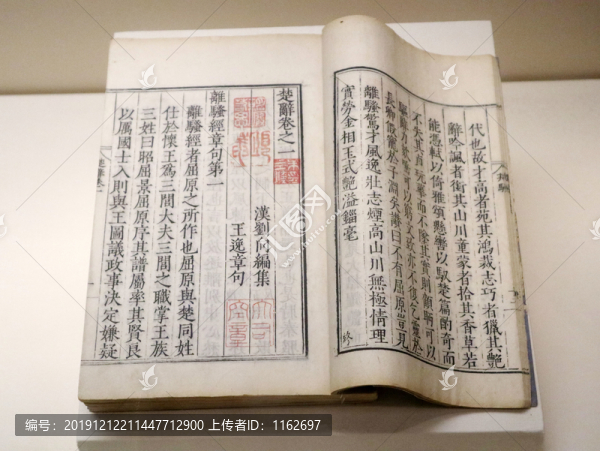 代也故才高者苑其鴻裁志巧者獵其艷
辭吟諷者銜其山川童蒙者拾其香草若
能憑軾以倚雅頌懸轡以馭楚篇酌奇而
不失其真翫華而不墜其實則顧盼可以
驅辭力欬唾可以窮文致亦不復乞靈於
長卿假寵於子淵矣贊曰不有屈原豈見
離騷驚才風逸壯志煙高山川無極情理
實勞金相玉式艷溢錙毫
終
楚辭卷之一
漢劉向編集
王逸章句
離騷經章句第一
離騷經者屈原之所作也屈原與楚同姓
仕於懷王爲三閭大夫三閭之職掌王族
三姓曰昭屈景屈原序其譜屬率其賢良
以厲國士入則與王圖議政事決定嫌疑
编号：20191212211447712900 上传者ID：1162697